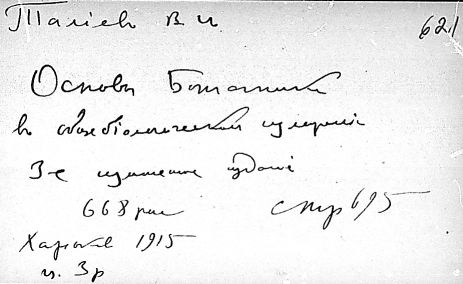 Талиев В. И. 621
Основы Ботаники
в общебиологической изложении
3-е измененное издание
668 рис стр 695
Харьков 1915
ц. 3р